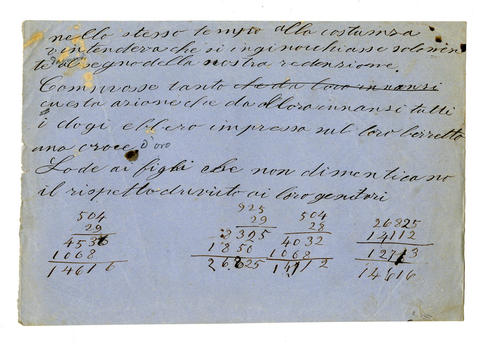 nello stesso tempo alla costanza
s'intendeva che si inginocchiasse solamen
te al segno della nostra redenzione.
Commosse tanto che da loro innanzi
questa azione che da allora innanzi tutti
i dogi ebbero impressa sul loro berretto
una croce d'oro
Lode ai figli che non dimenticano
il rispetto dovuto ai loro genitori
504 925 504 26825
29 29 28 14112
4536 8325 4032 12713
1008 1850 1008 14616
14616 26825 14112